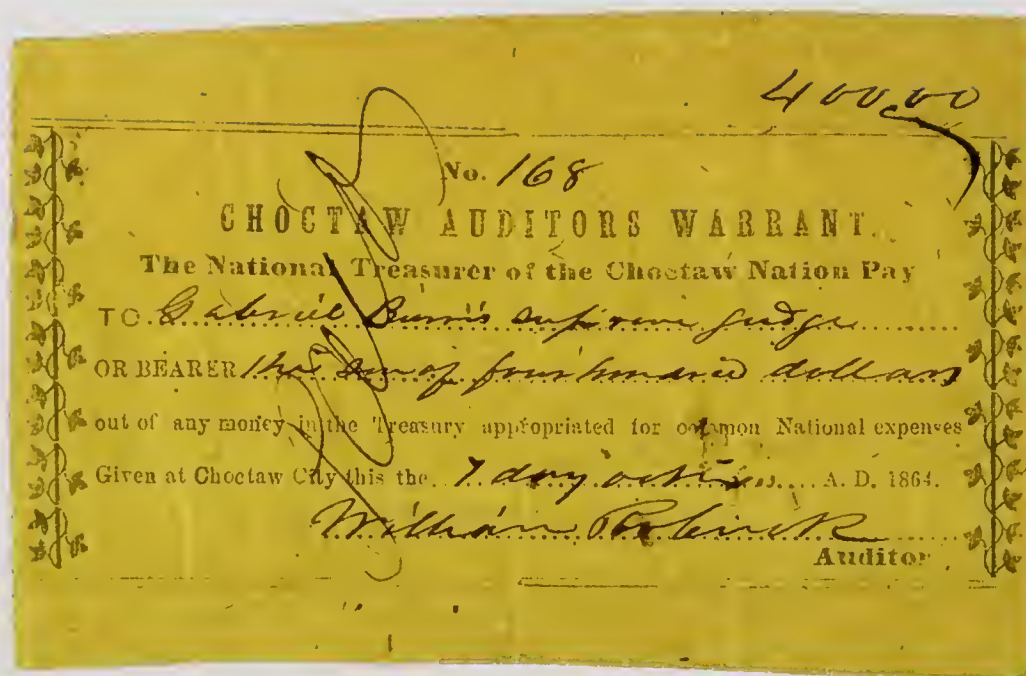 400.00
No. 168
CHOCTAW AUDITORS WARRANT.
The National Treasurer of the Choctaw Nation Pay
TO. Gabriel Burris supreme judge
OR BEARER the Sum of four hundred dollars
out of any money in the Treasury appropriated for common National expenses
Given at Choctaw City this the 7 day A. D. 1864.
William
Auditor